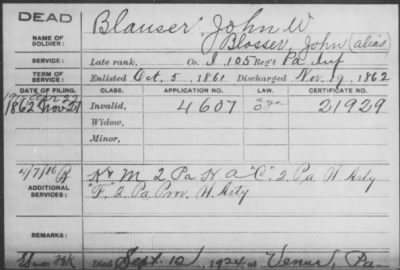 DEAD
NAME OF SOLDIER:
Blauser, John W
Blosser, John (alias)
SERVICE:
Late rank, Co. I, 105 Reg't Pa Inf
TERM OF SERVICE:
Enlisted Oct. 5, 1861 Discharged Nov. 19, 1862
DATE OF FILING. CLASS. APPLICATION NO. LAW. CERTIFICATE NO.
1862 Nov 27 Invalid, 4607 21929
Widow,
Minor,
4/7/10
ADDITIONAL SERVICES:
M 2 Pa H A "C" 2 Pa H. Arty
"F" 2 Pa Prov. H. Arty
REMARKS:
Died Sept. 10, 1924 at Venus, Pa